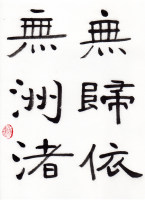 無歸依
無洲渚